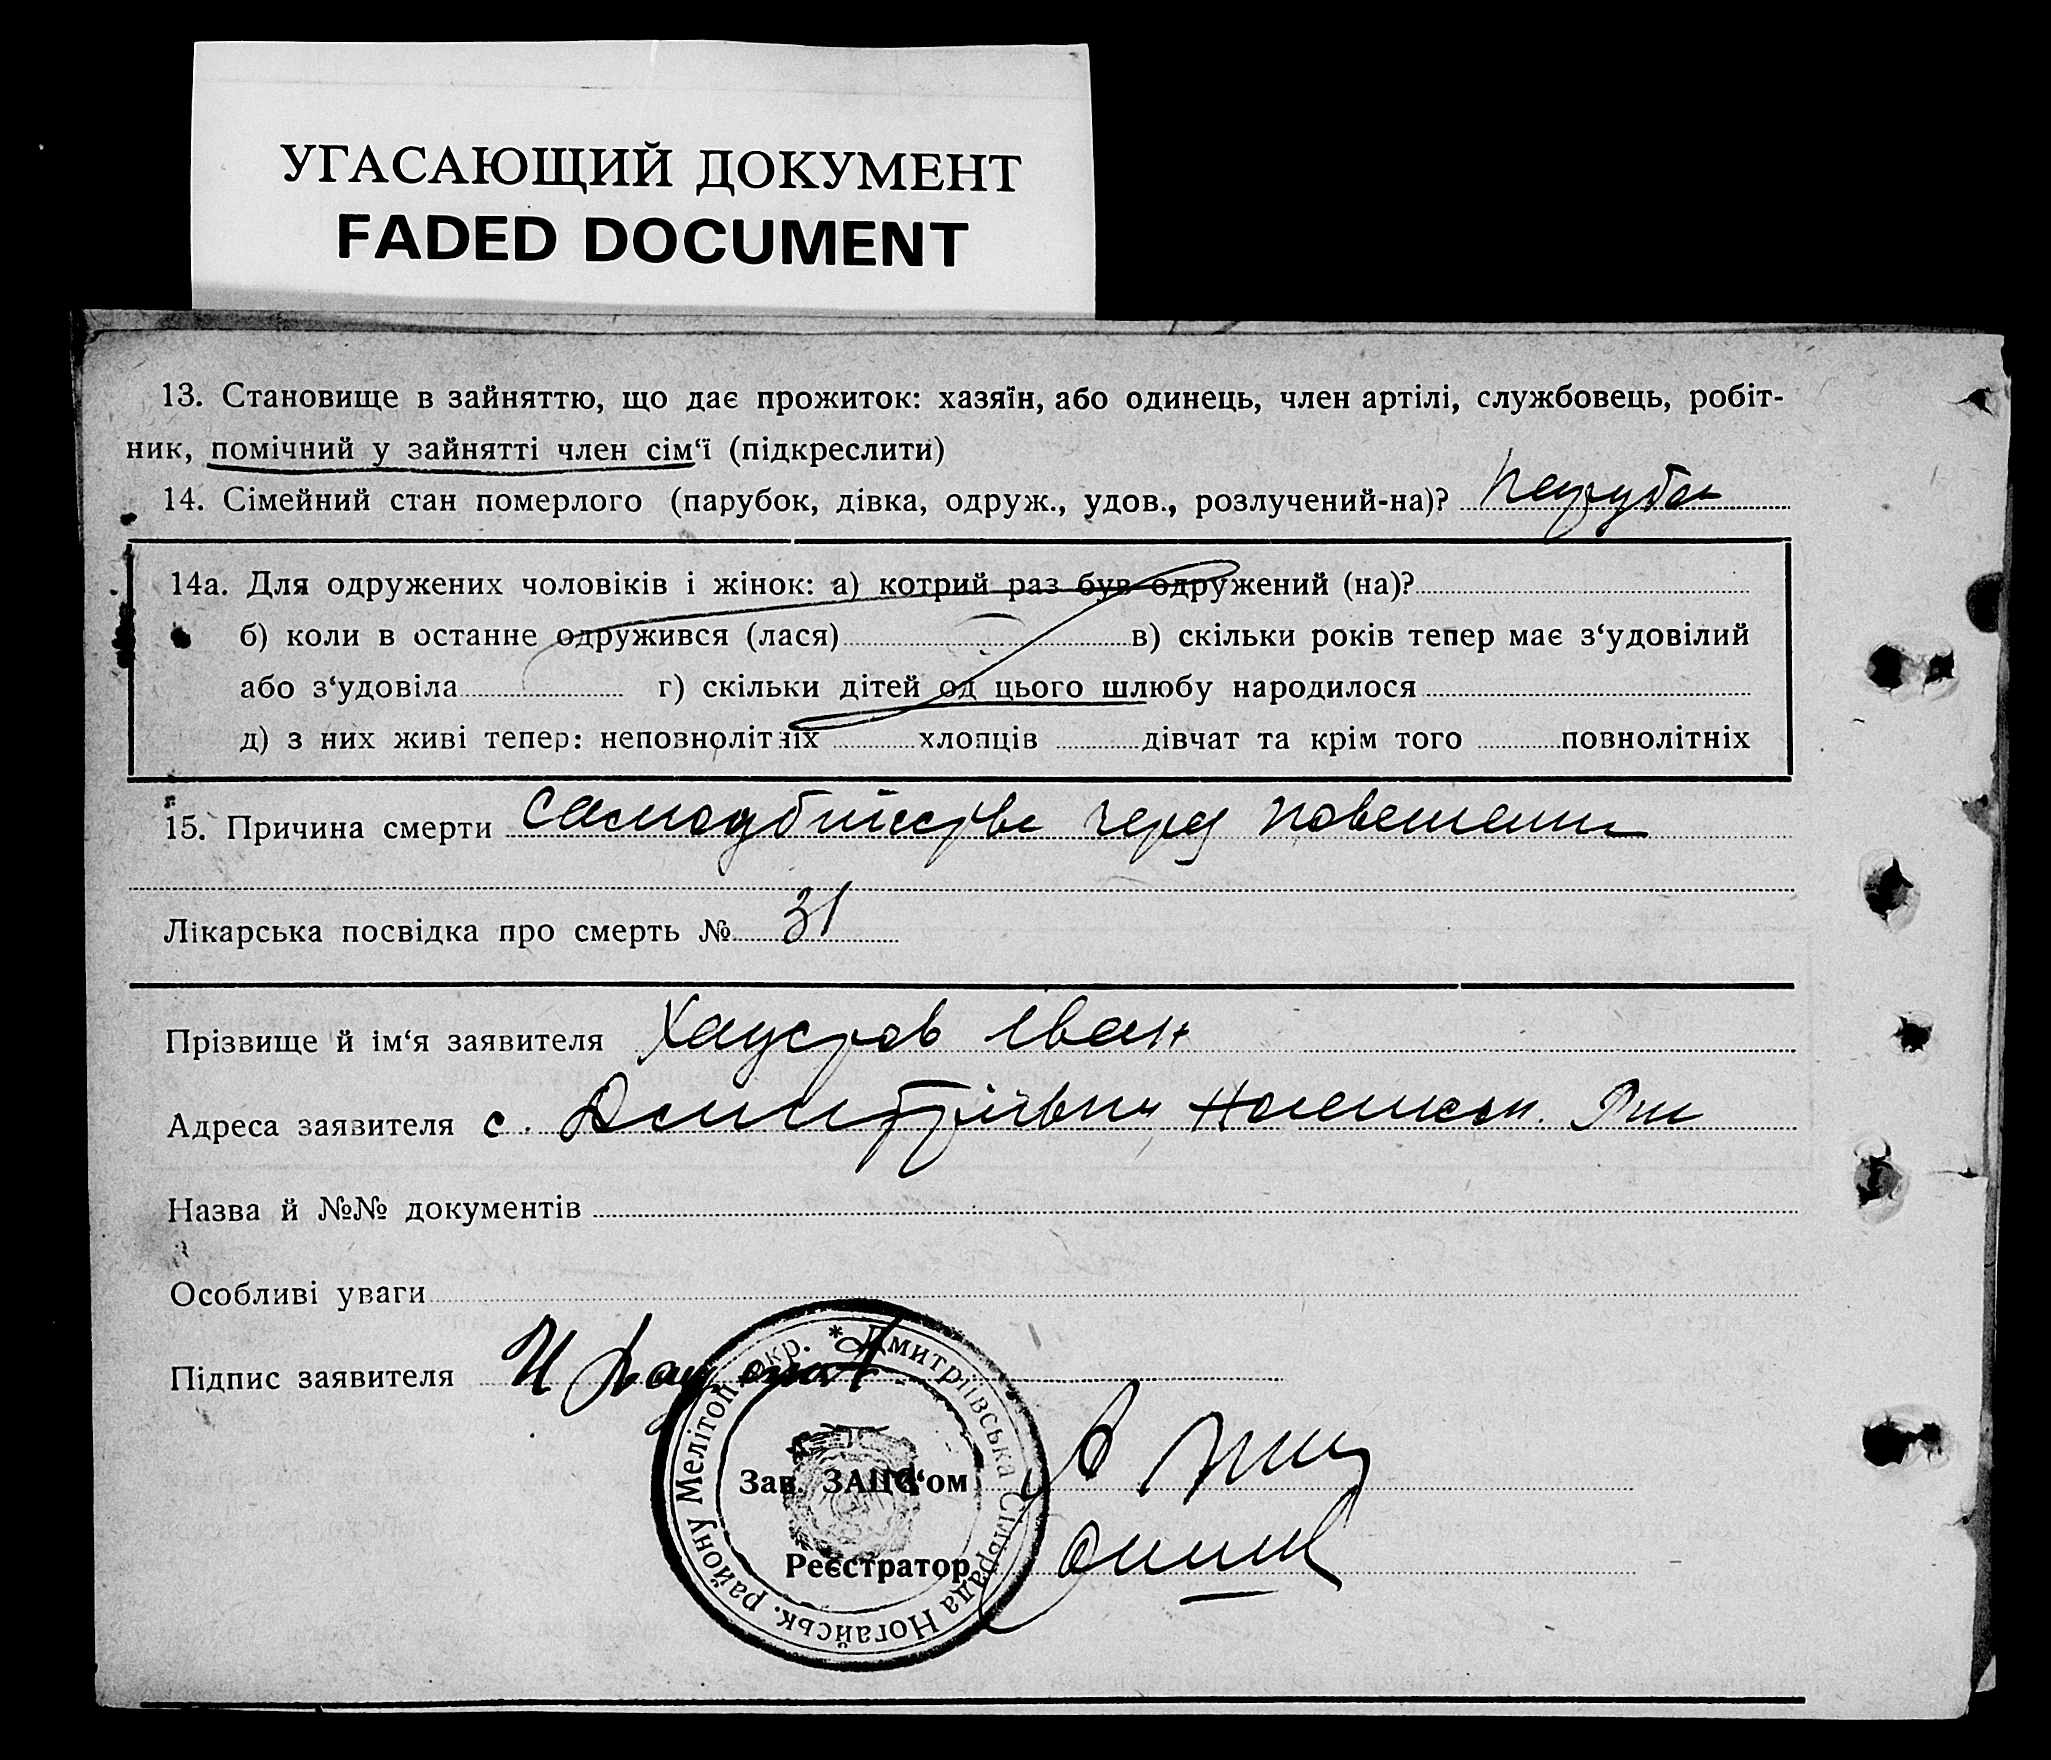 УГАСАЮЩИЙ ДОКУМЕНТ
FADED DOCUMENT
13. Становище в зайняттю, що дає прожиток: хазяїн, або одинець, член артілі, службовець, робіт-
ник, помічний у зайнятті член сім‘ї (підкреслити)
14. Сімейний стан померлого (парубок, дівка, одруж., удов., розлучений-на)? парубок
14а. Для одружених чоловіків і жінок: а) котрий раз був одружений (на)?
б) коли в останне одружився (лася) в) скільки років тепер має з‘удовілий
або з‘удовіла г) скільки дітей од цього шлюбу народилося
д) з них живі тепер: неповнолітніх хлопців дівчат та крім того повнолітніх
15. Причина смерти самоубийство через повешання
Лікарська посвідка про смерть № 31
Прізвище й ім‘я заявителя Хаустов Іван
Адреса заявителя с. Дмитріївки
Назва й №№ документів
Особливі уваги
Підпис заявителя И Хаустов
Зав. ЗАЦС‘ом
Реєстратор
* Дмитріївська Сільрада Ногайськ. району Мелітоп. окр.